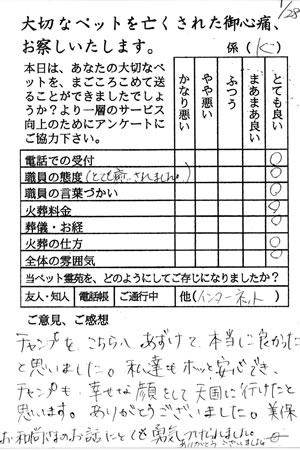 1/28
大切なペットを亡くされた御心痛、
お察しいたします。
係(K)
本日は、あなたの大切なペ
ットを、まごころこめて送
ることができましたでしょ
うか?より一層のサービス
向上のためにアンケートに
ご協力下さい。
かなり悪い
やや悪い
ふつう
まあまあ良い
とても良い
電話での受付
職員の態度(とても癒されました。)
職員の言葉づかい
火葬料金
葬儀・お経
火葬の仕方
全体の雰囲気
当ペット霊苑を、どのようにしてご存じになりましたか?
友人・知人 電話帳 ご通行中 他(インターネット)
ご意見、ご感想
チャンプを、こちらへ あずけて、本当に良かった
と思いました。私達も ホッと安心でき、
チャンプも 幸せな顔をして 天国に行けたと
思います。ありがとうございました。美保
お和尚さまのお話にとても 勇気づけられました。
ありがとうございました。